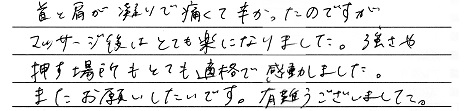 首と肩が凝りで痛くて辛かったのですが
マッサージ後はとても楽になりました。強さや
押す場所もとても適格で感動しました。
またお願いしたいです。有難うございましたて。